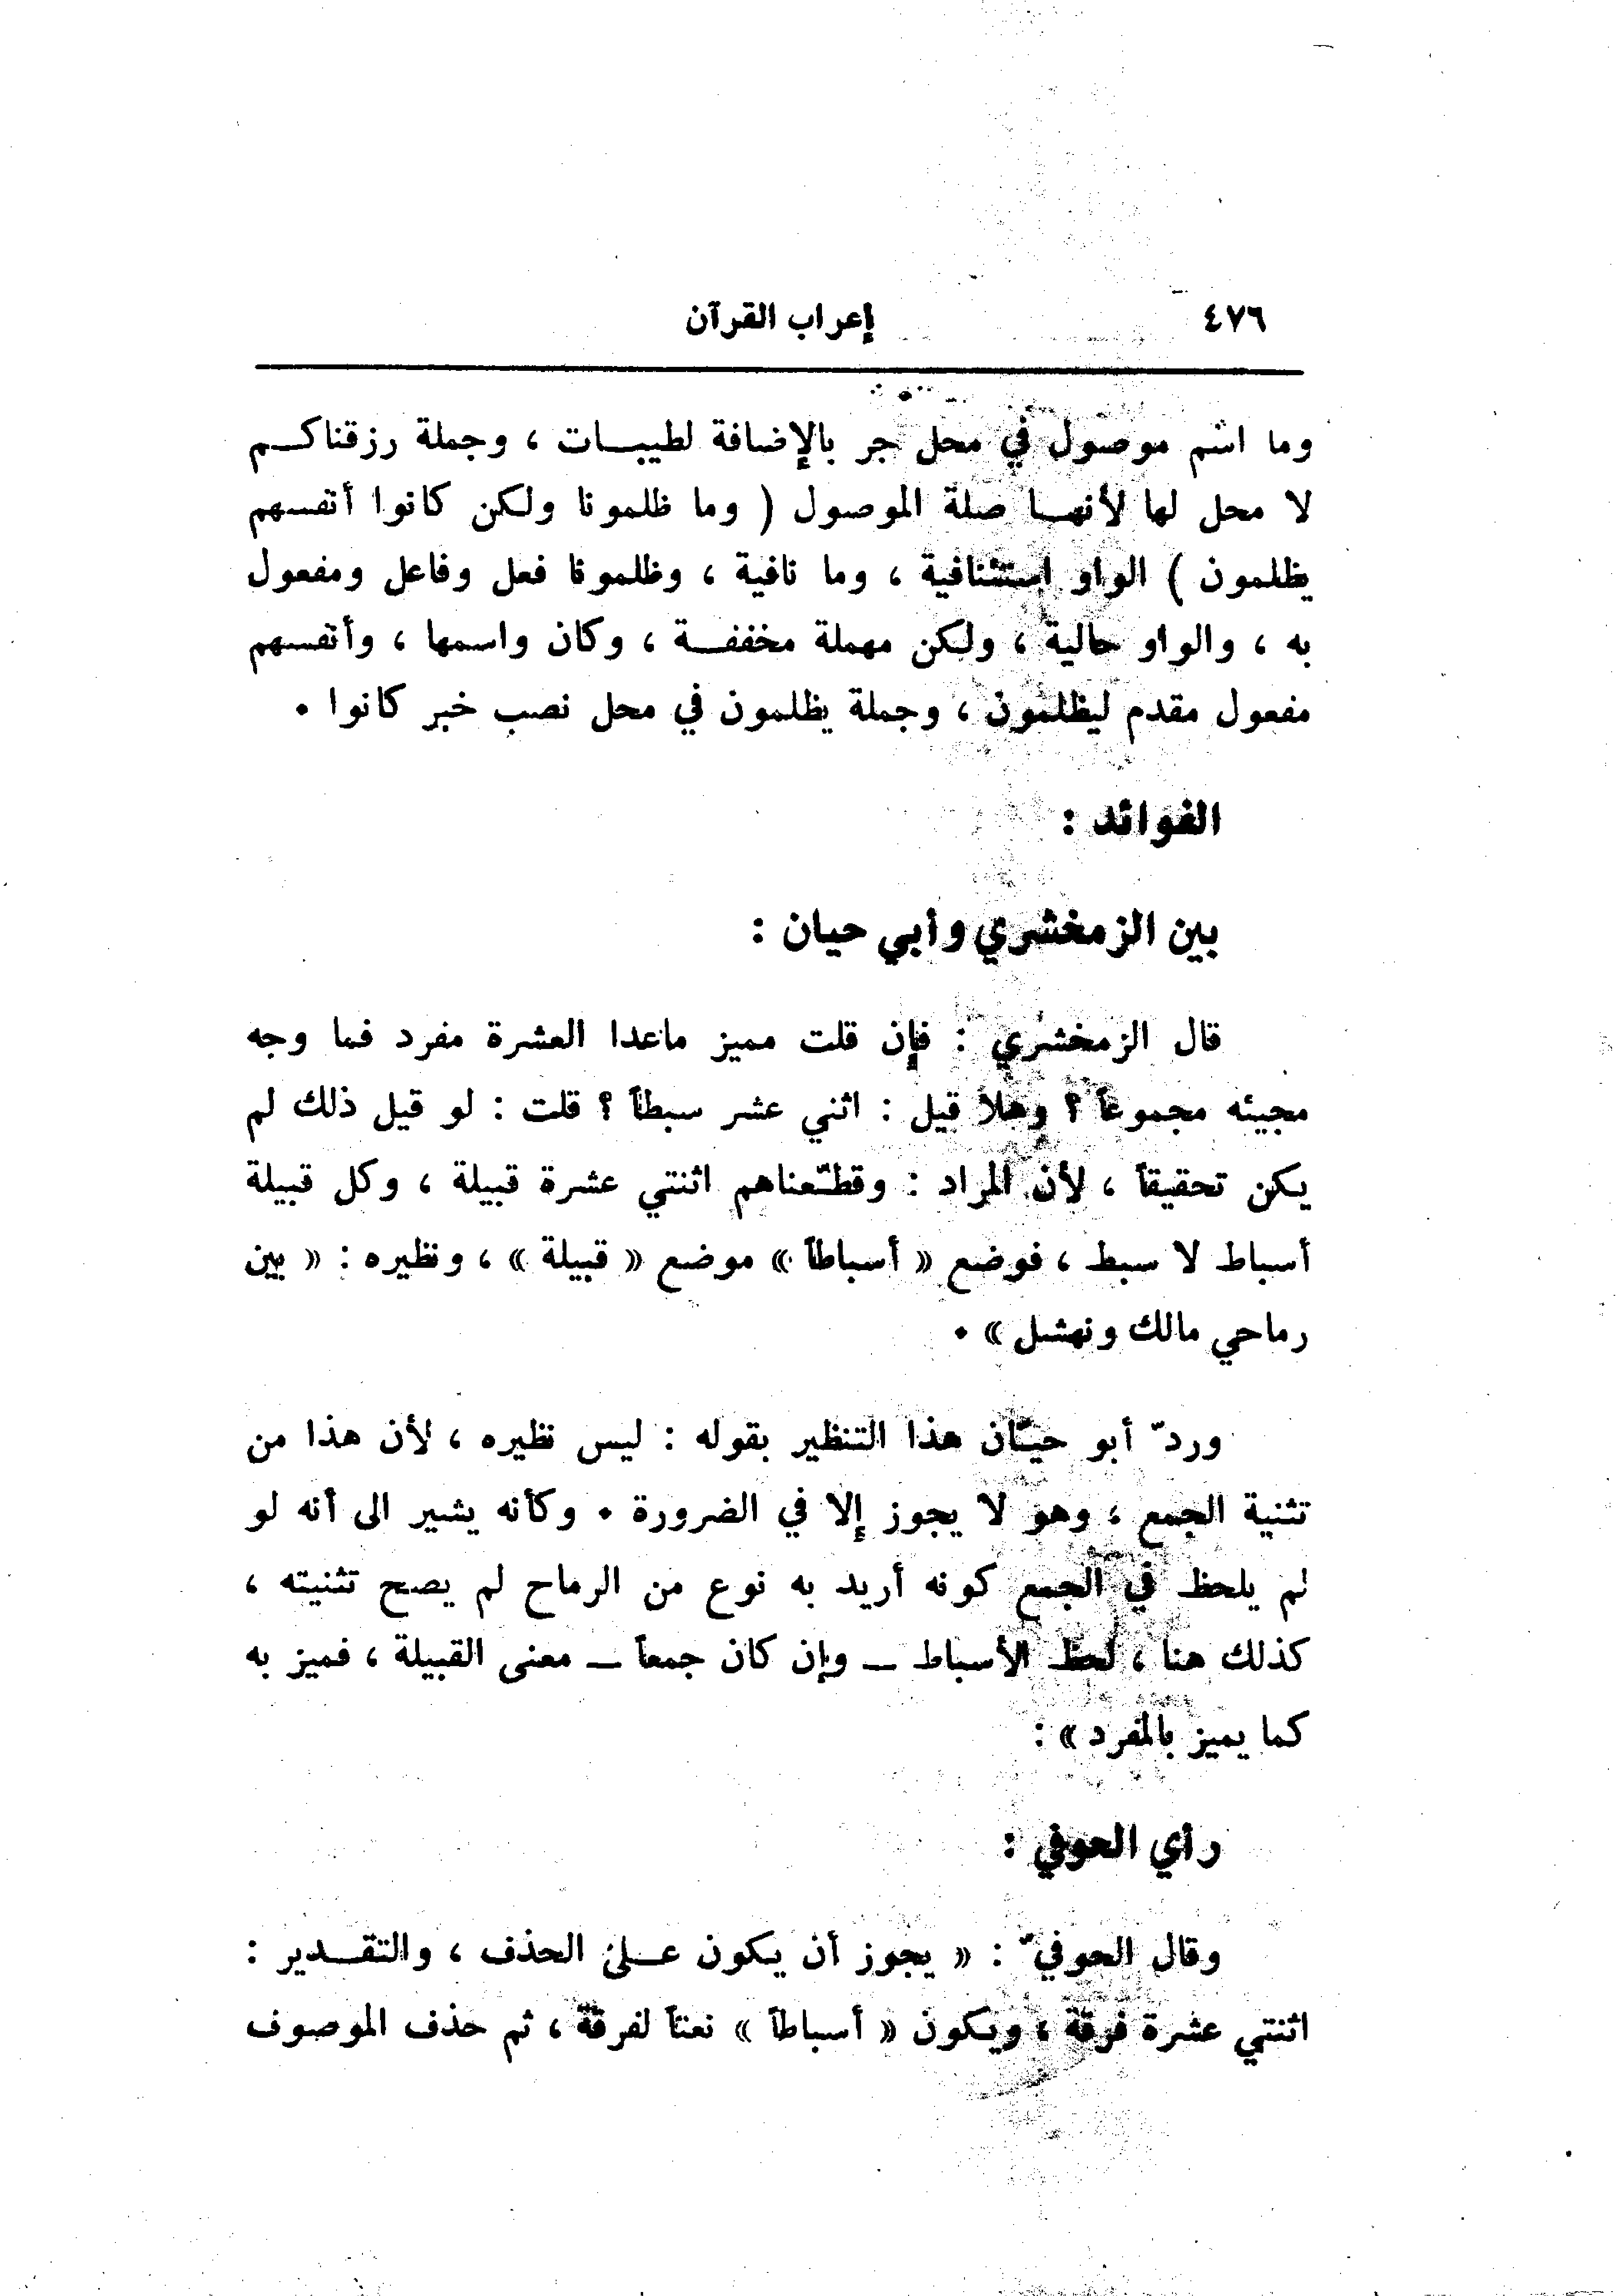 ٤٧٦ إعراب القرآن
وما اسم موصول في محل جر بالإضافة لطيبات ، وجملة رزقناكم
لا محل لها لأنها صلة الموصول ( وما ظلمونا ولكن كانوا أنفسهم
يظلمون ) الواو استئنافية ، وما نافية ، وظلمونا فعل وفاعل ومفعول
به ، والواو حالية ، ولكن مهملة مخففة ، وكان واسمها ، وأنفسهم
مفعول مقدم ليظلمون ، وجملة يظلمون في محل نصب خبر كانوا .
الفوائد :
بين الزمخشري وأبي حيان :
قال الزمخشري : فإن قلت مميز ماعدا العشرة مفرد فما وجه
مجيئه مجموعاً ؟ وهلا قيل : اثني عشر سبطاً ؟ قلت : لو قيل ذلك لم
يكن تحقيقاً ، لأن المراد : وقطّعناهم اثنتي عشرة قبيلة ، وكل قبيلة
أسباط لا سبط ، فوضع « أسباطاً » موضع « قبيلة » ، ونظيره : « بين
رماحي مالك ونهشل » .
وردّ أبو حيّان هذا التنظير بقوله : ليس نظيره ، لأن هذا من
تثنية الجمع ، وهو لا يجوز إلا في الضرورة . وكأنه يشير الى أنه لو
لم يلحظ في الجمع كونه أريد به نوع من الرماح لم يصح تثنيته ،
كذلك هنا ، لحظ الأسباط – وإن كان جمعاً – معنى القبيلة ، فميز به
كما يميز بالمفرد » :
رأي الحوفي :
وقال الحوفيّ : « يجوز أن يكون على الحذف ، والتقدير :
اثنتي عشرة فرقة ، ويكون « أسباطاً » نعتاً لفرقة ، ثم حذف الموصوف